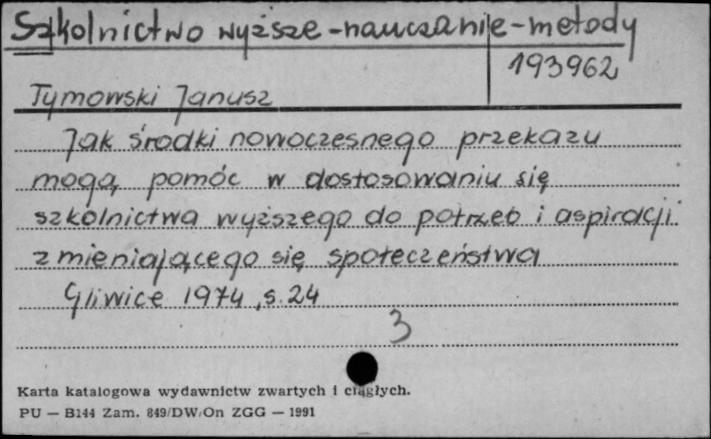 Szkolnictwo wyższe - nauczanie - metody
193962
Tymowski Janusz
Jak środki nowoczesnego przekazu
mogą pomóc w dostosowaniu się
szkolnictwa wyższego do potrzeb i aspiracji
zmieniającego się społeczeństwa
Gliwice 1974, s. 24
3
Karta katalogowa wydawnictw zwartych i ciągłych.
PU — B144 Zam. 849/DW/On ZGG — 1991